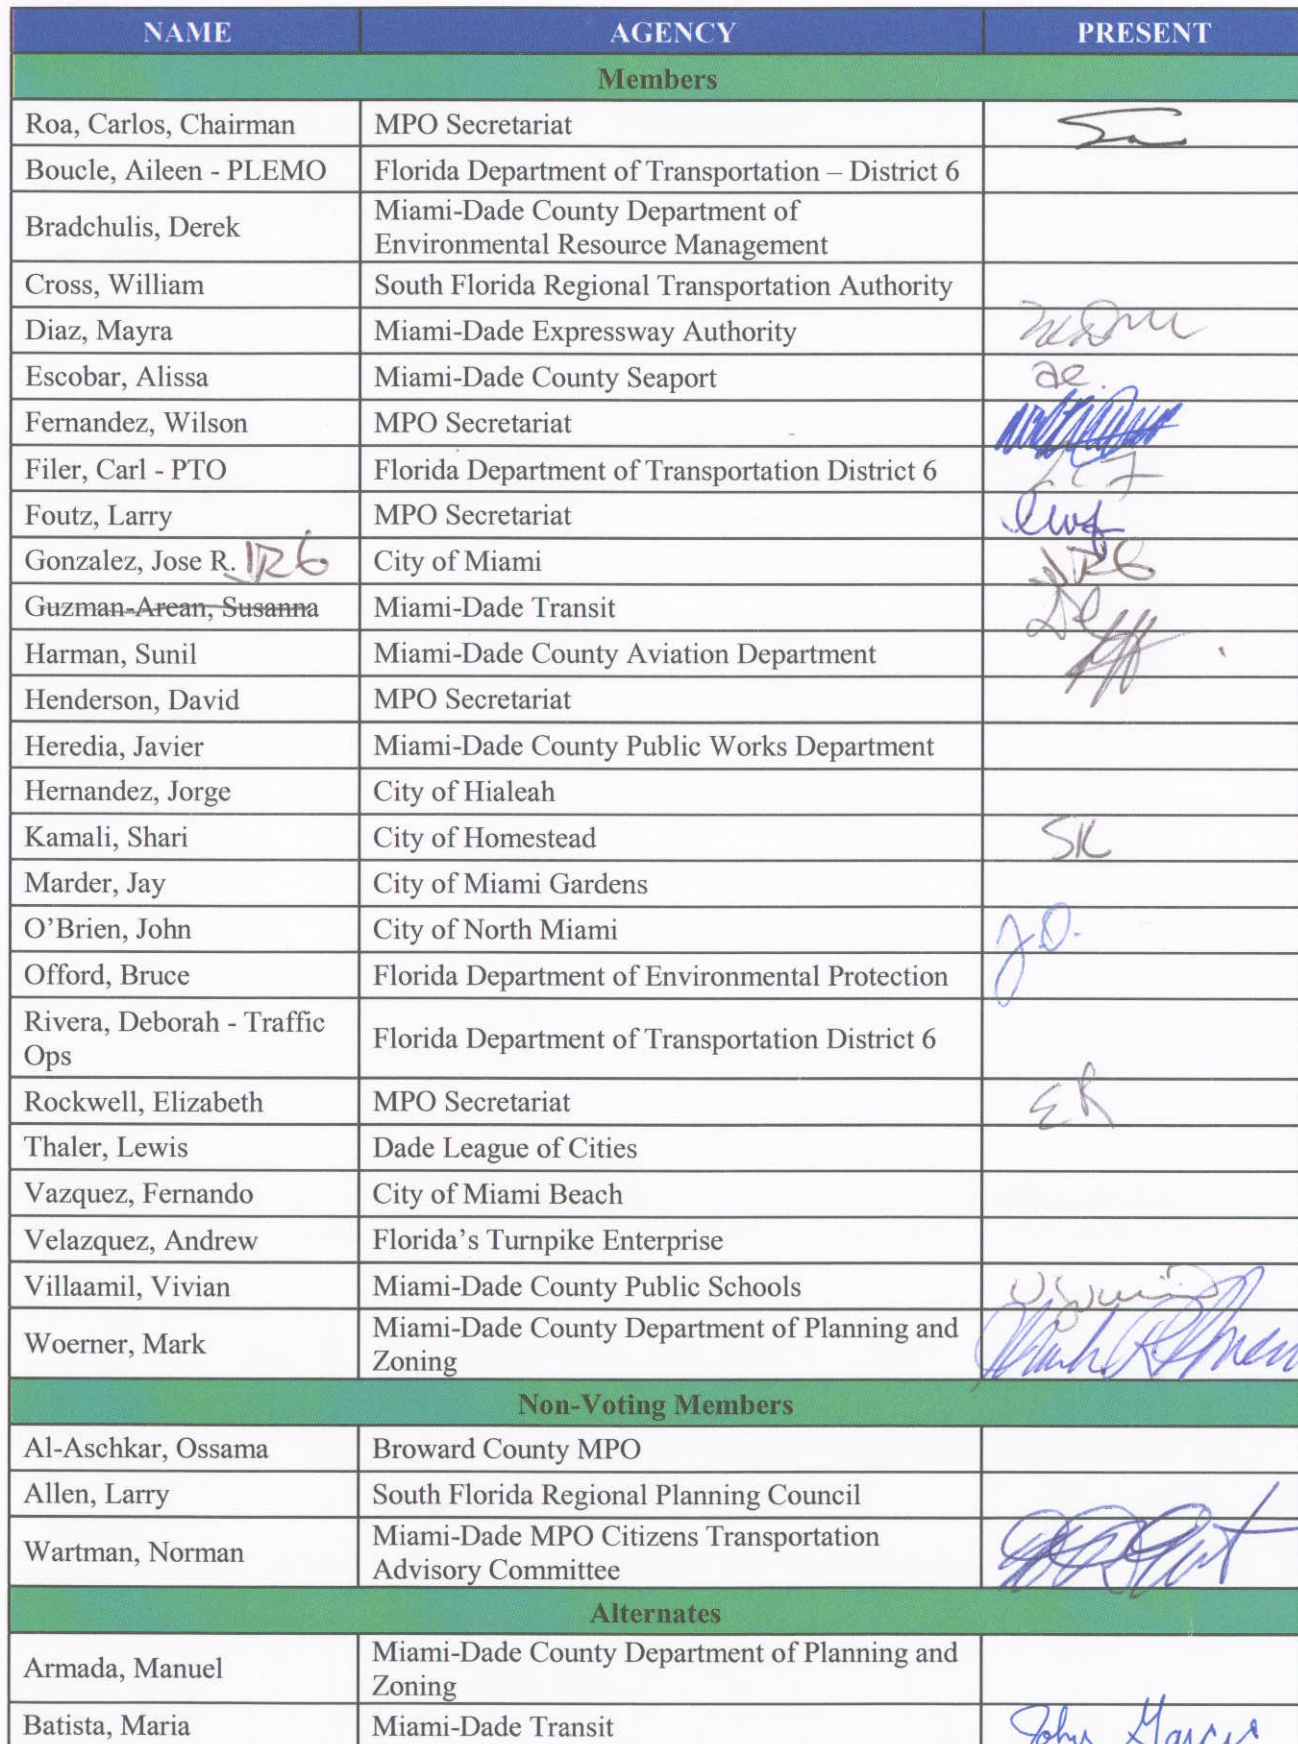 NAME AGENCY PRESENT
Members
Roa, Carlos, Chairman MPO Secretariat
Boucle, Aileen - PLEMO Florida Department of Transportation – District 6
Bradchulis, Derek Miami-Dade County Department of
Environmental Resource Management
Cross, William South Florida Regional Transportation Authority
Diaz, Mayra Miami-Dade Expressway Authority
Escobar, Alissa Miami-Dade County Seaport ae.
Fernandez, Wilson MPO Secretariat
Filer, Carl - PTO Florida Department of Transportation District 6
Foutz, Larry MPO Secretariat
Gonzalez, Jose R. JRG City of Miami JRG
Guzman-Arean, Susanna Miami-Dade Transit
Harman, Sunil Miami-Dade County Aviation Department
Henderson, David MPO Secretariat
Heredia, Javier Miami-Dade County Public Works Department
Hernandez, Jorge City of Hialeah
Kamali, Shari City of Homestead SK
Marder, Jay City of Miami Gardens
O’Brien, John City of North Miami J.O.
Offord, Bruce Florida Department of Environmental Protection
Rivera, Deborah - Traffic
Ops Florida Department of Transportation District 6
Rockwell, Elizabeth MPO Secretariat ER
Thaler, Lewis Dade League of Cities
Vazquez, Fernando City of Miami Beach
Velazquez, Andrew Florida’s Turnpike Enterprise
Villaamil, Vivian Miami-Dade County Public Schools
Woerner, Mark Miami-Dade County Department of Planning and
Zoning
Non-Voting Members
Al-Aschkar, Ossama Broward County MPO
Allen, Larry South Florida Regional Planning Council
Wartman, Norman Miami-Dade MPO Citizens Transportation
Advisory Committee
Alternates
Armada, Manuel Miami-Dade County Department of Planning and
Zoning
Batista, Maria Miami-Dade Transit John Garcia